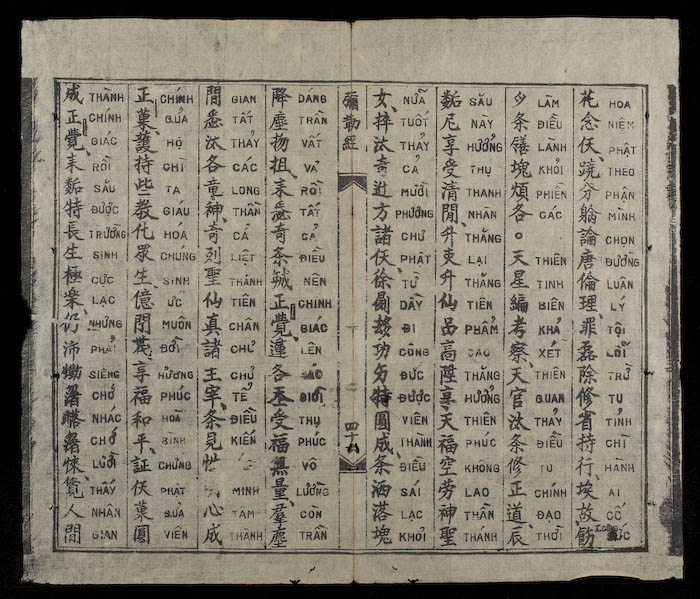 HOA NIỆM PHẬT THEO PHẬN MÌNH CHỌN ĐƯỜNG LUÂN LÝ TỘI LỖI TRỪ TU TỈNH CHÌ HÀNH AI CỐ
花念伕蹺分論唐倫理罪磊除修省持行埃故
LÀM ĐIỀU LÀNH KHỎI PHIỀN CÁC THIÊN TINH BIÊN KHẢ XÉT THIÊN QUAN THẢY ĐIỀU TU CHÍNH ĐẠO THỜI
夕条塊煩各。天星編考察天官汰条修正道辰
SÁU NÀY HƯỞNG THỤ THANH NHÀN THĂNG LẠI THĂNG TIÊN PHẨM CAO THĂNG HƯỞNG THIÊN PHÚC KHÔNG LAO THẦN THÁNH
尼享受清閒升吏升仙品高陞享天福空劳神聖
NỮA TUỐT THẢY CẢ MƯỜI PHƯƠNG CHƯ PHẬT TỪ DẦY ĐI CÔNG ĐỨC ĐƯỢC VIÊN THÀNH ĐIỀU SÁI LẠC KHỎI
女梓汰奇近方諸伕徐功特圓成条洒落塊
彌勒經
四十
DÁNG TRẦN VẬT VẢ RỒI TẤT CẢ ĐIỀU NÊN CHÍNH GIÁC LÊN CÁC GIỚI THỤ PHÚC VÔ LƯỢNG CÒN TRẦN
降塵物耒悉奇条正覺蓮各受福無量羣塵
GIAN TẤT THẢY CÁC LONG THẦN CẢ LIỆT THÁNH TIÊN CHÂN CHƯ CHỦ TỂ ĐIỀU KIẾN MINH TÂM THÀNH
間悉汰各竜神奇列聖仙真諸主宰条見心成
CHÍNH QUẢ HỘ CHÌ TA GIÁU HOÁ CHÚNG SINH ỨC MUÔN ĐỜI HƯỞNG PHÚC HOÀ BÌNH CHỨNG PHẬT QUẢ VIÊN
正菓護持些教化眾生億享福和平証伕菓圓
THÀNH CHÍNH GIÁC RỒI SÁU ĐƯỢC TRƯỜNG SINH CỰC LẠC NHƯNG PHẢI SIÊNG CHỚ NHÁC CHỚ LƯỜI THẤY NHÂN GIAN
成正覺耒特長生極樂仍沛人間